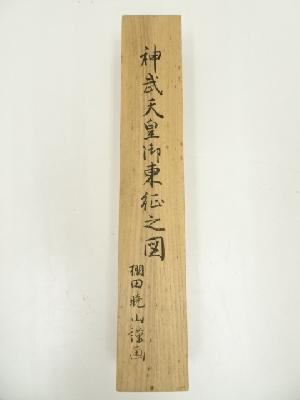 神武天皇御東征之図
棚田暁山謹画